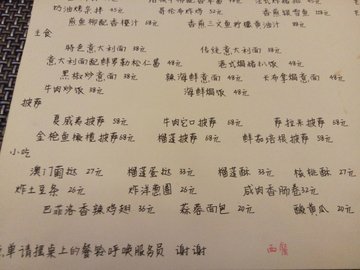 奶油烤杂拌 45元 哥伦布炸鸡 52元 香煎银雪鱼
煎鱼柳配香橙汁 68元 香煎三文鱼柠檬黄油汁
主食
特色意大利面 38元 传统意大利面 48元
意大利面配鲜罗勒松仁酱 48元 港式焗猪扒饭 48元
黑椒炒意面 38元 辣海鲜意面 48元 卡布拿焗意面 48元
牛肉炒饭 38元 海鲜焗饭 48元
披萨
夏威夷披萨 58元 牛肉芝口披萨 58元 萨拉米披萨 68元
金枪鱼橄榄披萨 68元 榴莲披萨 68元 鲜茄培根披萨 58元
小吃
澳门葡挞 27元 榴莲蛋挞 33元 榴莲酥 33元 核桃酥 27元
炸土豆条 26元 炸洋葱圈 26元 咸肉香肠卷 32元
巴菲洛香辣鸡翅 36元 蒜蓉面包 20元 酸黄瓜 20元
单请摁桌上的餐铃呼唤服务员 谢谢 西餐